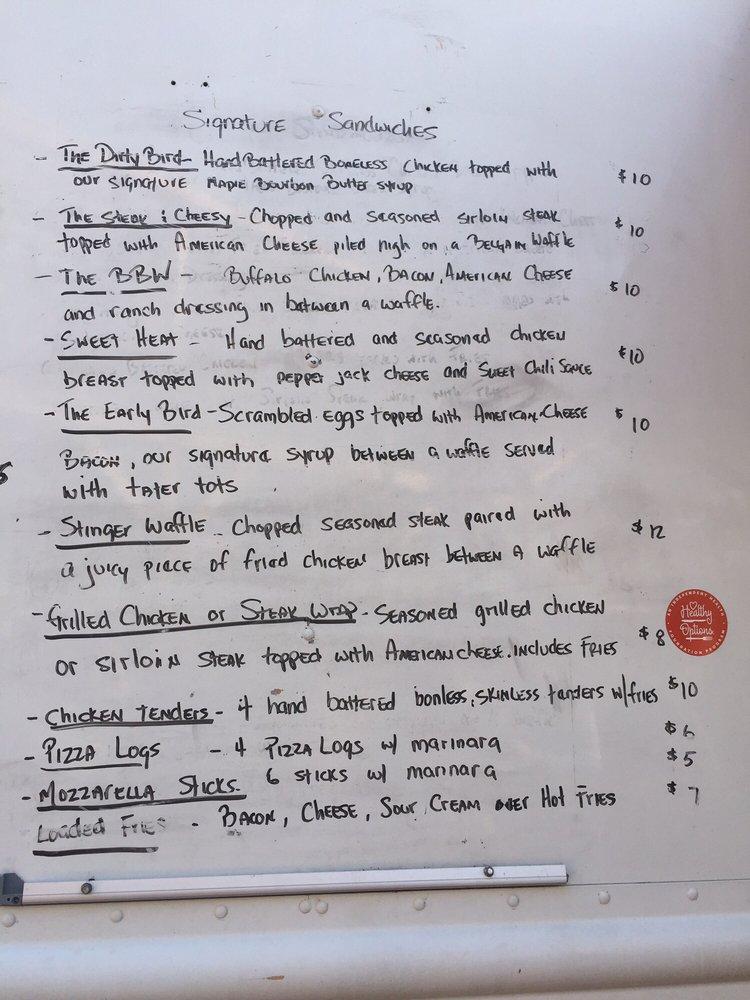 Signature Sandwiches
- The Dirty Bird - Hand Battered Boneless Chicken topped with
our signature Maple Bourbon Butter syrup $10
- The Steak & Cheesy - Chopped and seasoned sirloin steak
topped with American Cheese piled high on a Belgain Waffle $10
- The BBW - Buffalo Chicken, Bacon, American Cheese
and ranch dressing in between a waffle. $10
- Sweet Heat - Hand battered and seasoned chicken
breast topped with pepper jack cheese and Sweet Chili Sauce $10
- The Early Bird - Scrambled eggs topped with American Cheese $10
Bacon, our signature syrup between a waffle served
with tater tots
- Stinger Waffle - Chopped seasoned steak paired with $12
a juicy piece of fried chicken breast between a waffle
- Grilled Chicken or Steak Wrap - Seasoned grilled chicken
or sirloin steak topped with American cheese. Includes Fries $8
An Independent Health
Healthy
Options
Foundation Program
- Chicken Tenders - 4 hand battered bonless, skinless tenders w/fries $10
- Pizza Logs - 4 Pizza Logs w/ marinara $6
- Mozzarella Sticks. 6 sticks w/ marinara $5
Loaded Fries - Bacon, Cheese, Sour Cream over Hot Fries $7